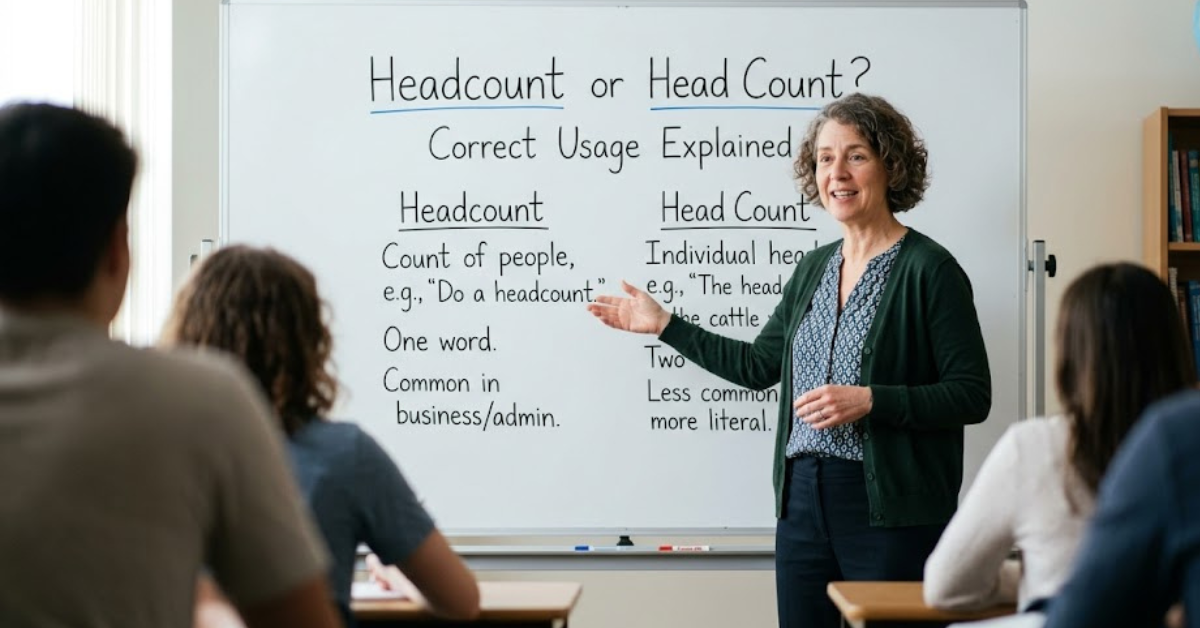 Headcount or Head Count?
Correct Usage Explained
Headcount
Count of people,
e.g., “Do a headcount.”
One word.
Common in
business/admin.
Head Count
Individual
e.g., “The head
the cattle
Two
Less common
more literal.